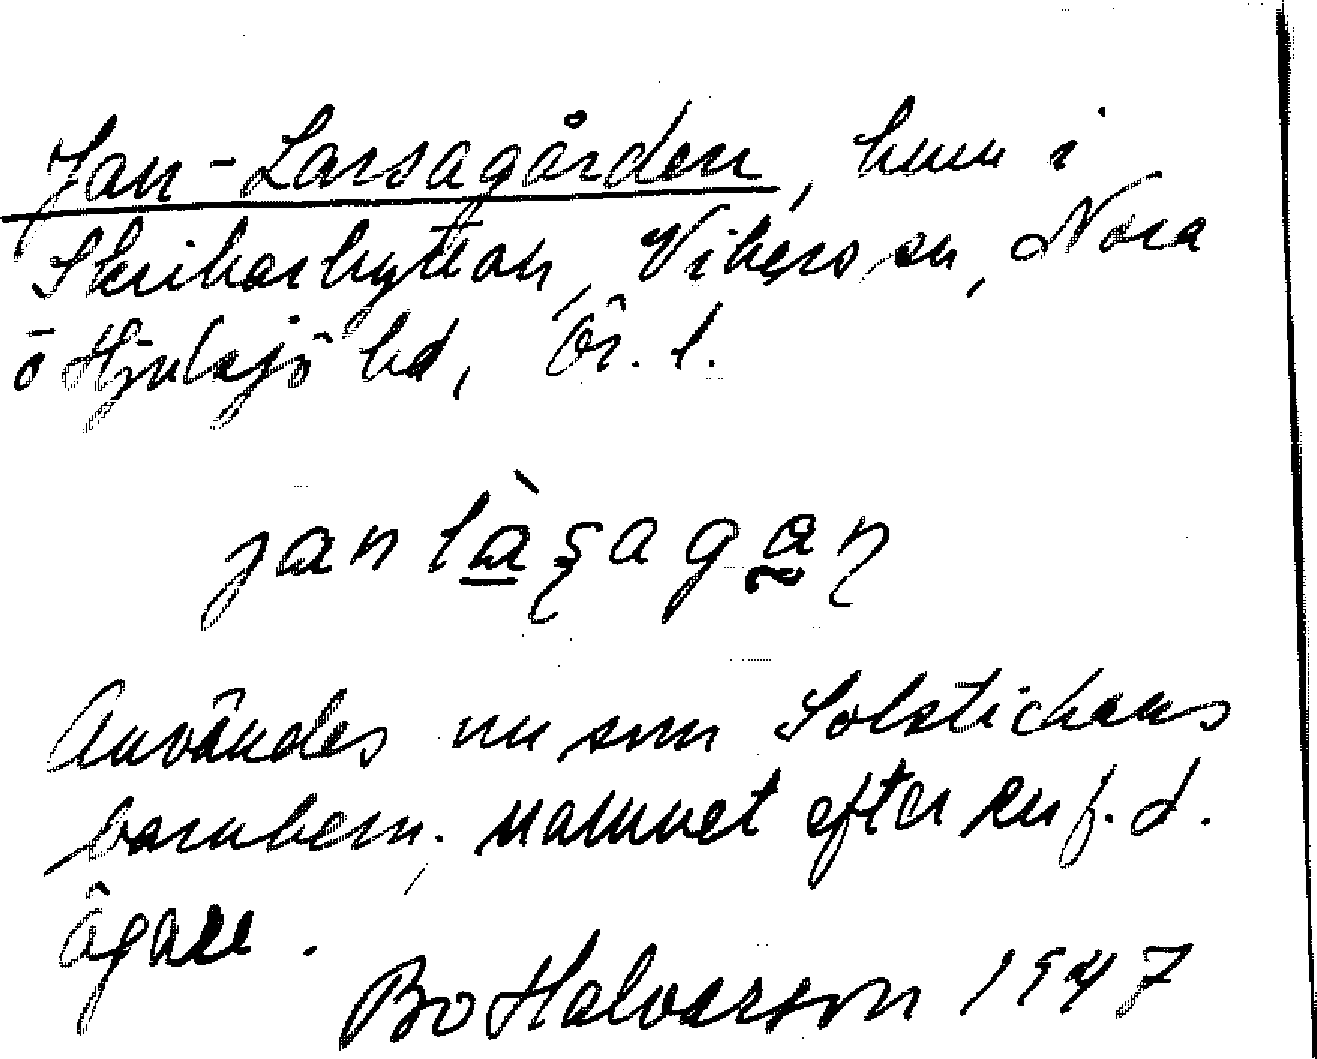 Jan-Larsagården, hem i
Skrikarhyttan, Vikers sn, Nora
o Hjulsjö hd, Ör. l.
jan làʂagaɳ
Användes nu som Solstickans
barnhem. Namnet efter en f. d.
ägare.
Bo Halvarson 1947